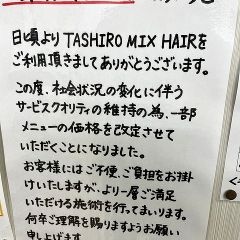 日頃より TASHIRO MIX HAIRを
ご利用頂きましてありがとうございます。
この度、社会状況の変化に伴う
サービスクオリティの維持の為、一部
メニューの価格を改定させて
いただくことになりました。
お客様にはご不便、ご負担をお掛
けいたしますが、より一層ご満足
いただける施術を行ってまいります。
何卒ご理解を賜りますようお願い
申し上げます